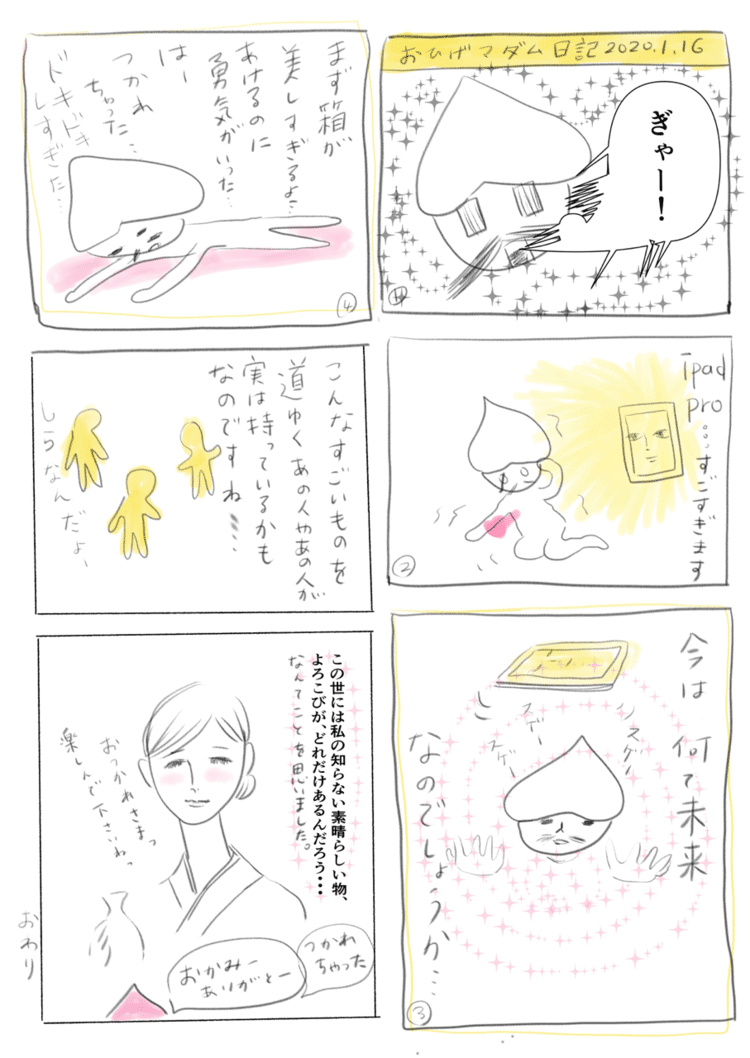 おひげマダム日記2020.1.16
ぎゃー！
1
ipad
pro…すごすぎます
2
今は何て未来
なのでしょうか…
スゲー
スゲー
スゲー
3
まず箱が
美しすぎるよ…
あけるのに
勇気がいった…
はー
つかれ
ちゃった…
ドキドキ
しすぎた…
4
こんなすごいものを
道ゆくあの人やあの人が
実は持っているかも
なのですね……
しらなんだよ、
この世には私の知らない素晴らしい物、
よろこびが、どれだけあるんだろう・・・
なんてことを思いました。
おつかれさまっ
楽しんで下さいねっ
つかれ
ちゃった
おかみー
ありがとー
おわり